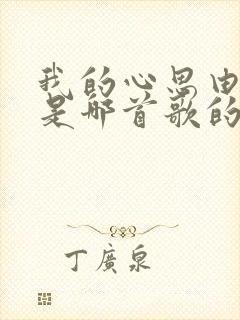 我的心思由
是那首歌的
丁廣泉